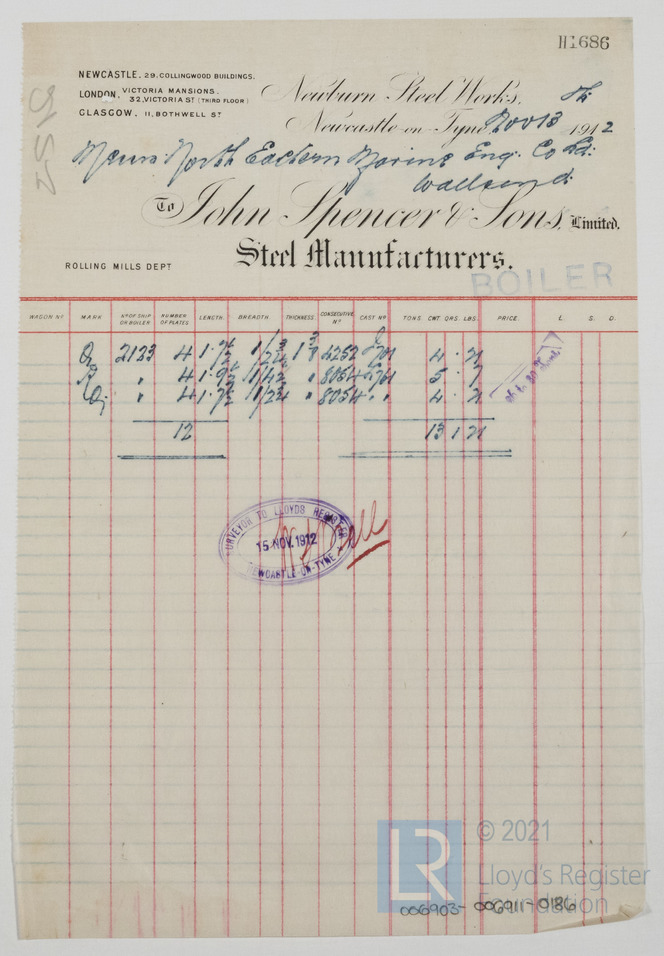 111686
NEWCASTLE. 29, COLLINGWOOD BUILDINGS.
LONDON, VICTORIA MANSIONS.
32, VICTORIA ST (THIRD FLOOR)
GLASGOW, 11, BOTHWELL ST
Newburn Steel Works,
Newcastle-on-Tyne Nov 13 1912
Messrs North Eastern Marine Eng. Co Ld:
Wallsend
To John Spencer & Sons, Limited.
Steel Manufacturers.
ROLLING MILLS DEPT
BOILER
WAGON No MARK No OF SHIP OR BOILER NUMBER OF PLATES LENGTH. BREADTH. THICKNESS. CONSECUTIVE No CAST No TONS. CWT. QRS. LBS. PRICE. £. S. D.
2133 4 4 . 21
" 4 8054 5 . 7
" 4 8054 " 4 . 21
12 13 1 21
SURVEYOR TO LLOYDS REGISTER
15 NOV. 1912
NEWCASTLE-ON-TYNE
LR
© 2021
Lloyd's Register
Foundation
006903-006911-0186